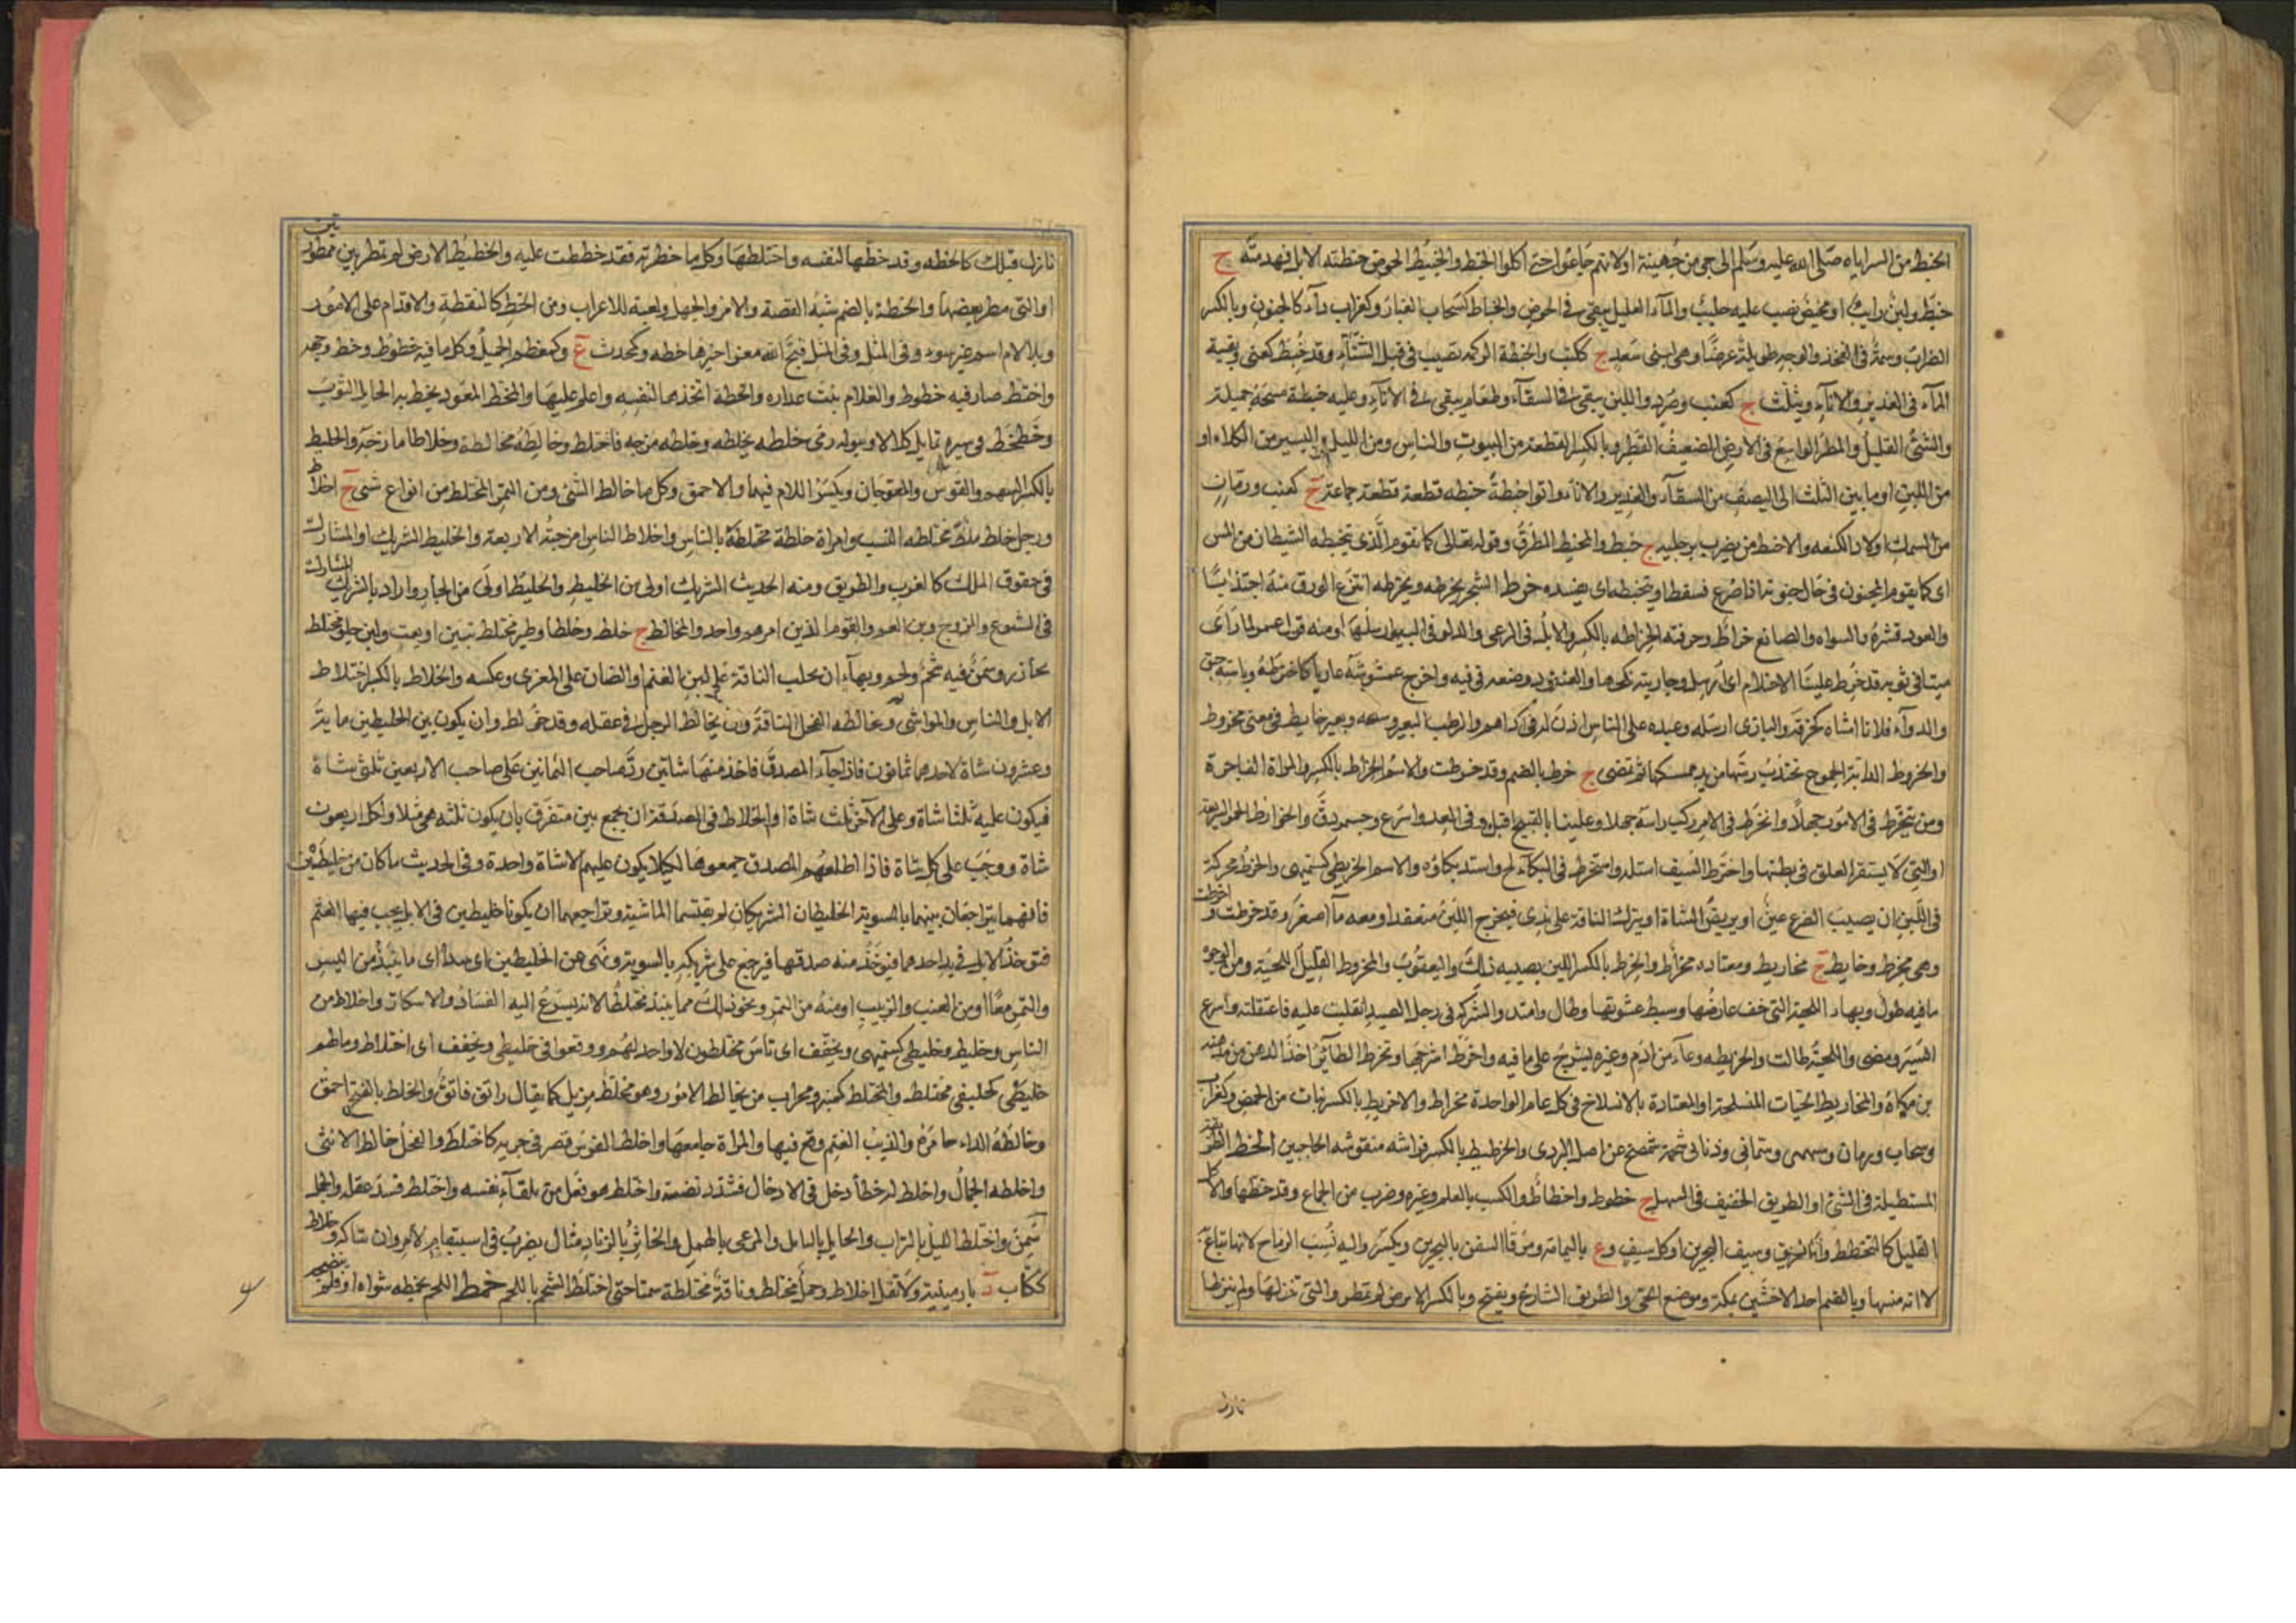 الخبط من السراياه صلى الله عليه وسلم الى حى من جهينة اولانهم جاعوا حتى اكلوا الخبط والخبيط الحوض خبطته الابل فهدمته ج
خبط ولبن رايب او مخيض يصب عليه حليب والمآء القليل يبقى فى الحوض والخباط كسحاب الغبار وكغراب دآء كالجنون وبالكسر
الضراب وسمة فى الفخذ والوجه طويلة عرضا وهى لبنى سعد ج ككتب والخبطة الزكمة تصيب فى قبل الشتآء وقد خبط كعنى وبقية
المآء فى الغدير والاناء ويثلث ج كعنب وصرد واللبن يبقى فى السقآء وطعام يبقى فى الانآء وعليه خبطة مسحة جميلة
والشئ القليل والمطر الواسع فى الارض الضعيف القطر وبالكسر القطعة من البيوت والناس ومن الليل واليسير من الكلاء او
من اللبن او ما بين الثلث الى النصف من السقآء والغدير والاناء واتوا خبطة خبطة قطعة قطعة جماعة ج كعنب ورمان
من السمك اولاد الكنعد والاخبط من يضرب برجليه ج خبط والمخبط المطرق وقوله تعالى كما يقوم الذى يتخبطه الشيطان من المس
اى كما يقوم المجنون فى حال جنونه اذا صرع فسقط او يتخبطه اى يفسده خرط الشجر يخرطه ويخرطه انتزع الورق منه اجتذابا
والعود قشره وسواه والصانع خراط وحرفته الخراطه بالكسر والابل فى الرعى والدلو فى البير ارسلها ومنه قول عمر لما رأى
منيا فى ثوبه قد خرط علينا الاحتلام اى ارسل وجاريته نكحها والعنقود وضعه فى فيه واخرج عمشوشه عاريا كاخرطه وباسته حبق
والدوآء فلانا امشاه كخرقه والبازى ارسله وعبده على الناس اذن له فى اذاهم والرطب البعير وبعير خارط فى معنى مخروط
والخروط الدابة الجموح تجتذب رسنها من يد ممسكها ثم تمضى ج خرط بالضم وقد خرطت والاسم الخراط بالكسر والمراة الفاجرة
ومن يتخرط فى الامور جهلا وانخرط فى الامر ركب راسه جهلا وعلينا بالقبيح اقبل وفى العدو اسرع وجسمه دق والخوارط الحمر السريعة
او التى لا يستقر العلق فى بطنها واخترط السيف استله واستخرط فى البكآء لج واشتد بكاؤه والاسم الخريطى كسميهى والخرط محركة
فى اللبن ان يصيب الضرع عين او يربض الشاة او يترك الناقة على ندى فيخرج اللبن منعقدا ومعه مآ اصفر وقد خرطت و
اخرطت
وهى مخرط وخارط ج مخاريط ومعتاده مخراط والخرط بالكسر اللبن يصيبه ذلك واليعقوب والمخروط القليل اللحية ومن الوجوه
ما فيه طول وبهاء اللحية التى خف عارضها وسبط عثنونها وطال وامتد والشركة فى رجل الصيد انقلبت عليه فاعتقلته واسرع
السير ومضى واللحية طالت والخريطه وعآء من ادم وغيره يشرج على ما فيه واخرط اشرجها وتخرط الطآئر اخذ الدهن من مدهنه
والمخاريط الحيات المنسلخة او المعتادة بالانسلاخ فى كل عام الواحدة مخراط والاخريط بالكسر نبات من الحمض وكغراب
وسحاب ورمان وسمهى وسمانى وذنابى شحمة تتمصخ عن اصل البردى والخرطيط بالكسر فراشه منقوشه الحاجبين الخط الطريقة
المستطيلة فى الشئ او الطريق الخفيف فى السهل ج خطوط واخطاط والكتب بالقلم وغيره وضرب من الجماع وقد خطها والاكل
القليل كالتخطيط والطريق وسيف البحرين او كل سيف وع باليمامة ومرفا السفن بالبحرين ويكسر واليه نسبت الرماح لانها تباع به
لا انه منبتها وبالضم احد الاخشبين بمكة وموضع الحى والطريق الشارع ويفتح وبالكسر الارض لم تمطر والتى تنزلها ولم ينزلها
نازل
نازل قبلك كالخطه وقد خطها لنفسه واختطها وكل ما حظرته فقد خططت عليه والخطيط الارض لم تمطر بين ممطورتين
او التى مطر بعضها والخطة بالضم شبه القصة والامر والجهل ولعبة للاعراب ومن الخط كالنقطة والاقدام على الامور
وبلا لام اسم عنز سوء وفى المثل قبح الله معزى خيرها خطه وكمحدث ع وكمعظم الجميل وكل ما فيه خطوط وخط وجهه
واختط صار فيه خطوط والغلام نبت عذاره والخطة اتخذها لنفسه واعلم عليها والمخط العود يخط به الحايك الثوب
وخطخط فى سيره تمايل كلالا وببوله رمى خلطه يخلطه وخلطه مزجه فاختلط وخالطه مخالطة وخلاطا مازجه والخلط
بالكسر السهم والقوس المعوجان ويكسر اللام فيهما والاحمق وكل ما خالط الشئ ومن التمر المختلط من انواع شتى ج اخلاط
ورجل خلط ملط مختلط النسب وامراة خلطة مختلطة بالناس واخلاط الناس امزجته الاربعة والخليط الشريك او المشارك
فى حقوق الملك كالشرب والطريق ومنه الحديث الشريك اولى من الخليط والخليط اولى من الجار واراد بالشريك المشارك
فى الشيوع والزوج وابن العم والقوم الذين امرهم واحد والمخالط ج خلط وخلطا وطين مختلط بتبن او بقت ولبن حلو مختلط
بحازر وسمن فيه شحم ولحم وبهاء ان يحلب الناقة على لبن الغنم او الضان على المعزى وعكسه والخلاط بالكسر اختلاط
الابل والناس والمواشى ومخالطه الفحل الناقة وان يخالط الرجل فى عقله وقد خولط وان يكون بين الخليطين ماية
وعشرون شاة لاحدهما ثمانون فاذا جآء المصدق فاخذ منها شاتين رد صاحب الثمانين على صاحب الاربعين ثلث شاة
فيكون عليه ثلثا شاة وعلى الآخر ثلث شاة او الخلاط فى الصدقة ان يجمع بين متفرق بان يكون ثلثه نفر مثلا ولكل اربعون
شاة ووجب على كل شاة فاذا اظلهم المصدق جمعوها لكيلا يكون عليهم الا شاة واحدة وفى الحديث ما كان من خليطين
فانهما يتراجعان بينهما بالسوية الخليطان الشريكان لم يقتسما الماشية وتراجعهما ان يكونا خليطين فى الابل يجب فيها الغنم
فتوخذ الابل فى يد احدهما فتوخذ منه صدقتها فيرجع على شريكه بالسوية ونهى عن الخليطين ان ينبذا اى ما ينبذ من البسر
والتمر معا او من العنب والزبيب او منه ومن التمر ونحو ذلك مما ينبذ مختلطا لانه يسرع اليه الفساد والاسكار واخلاط من
الناس وخليط وخليطى كسميهى ويخفف اى ناس مختلطون لا واحد لهم ووقعوا فى خليطى ويخفف اى اختلاط ومالهم
خليطى كخليفى مختلط والمخلط كمنبر ومحراب من يخالط الامور وهو مخلط مزيل كما يقال راتق فاتق والخلط بالفتح احمق
وخالطه الداء خامره والذئب الغنم وقع فيها والمراة جامعها واخلط الفرس قصر فى جريه كاختلط والفحل خالط الانثى
واخلطه الجمال واخلط له خطأ دخل فى الادخال فسدد قضيبه واختلط هو فعل من تلقآء نفسه واختلط فسد عقله والجمل
سمن واختلط الليل بالتراب والحابل بالنابل والمرعى بالهمل والخاثر بالزباد مثال يضرب فى استبهام الامر وخلاط
ككتاب د بارمينية ولا تقل اخلاط وجمل مختلط وناقة مختلطة سمنا حتى اختلط الشحم باللحم خمط اللحم يخمطه شواه او فلم ينضجه